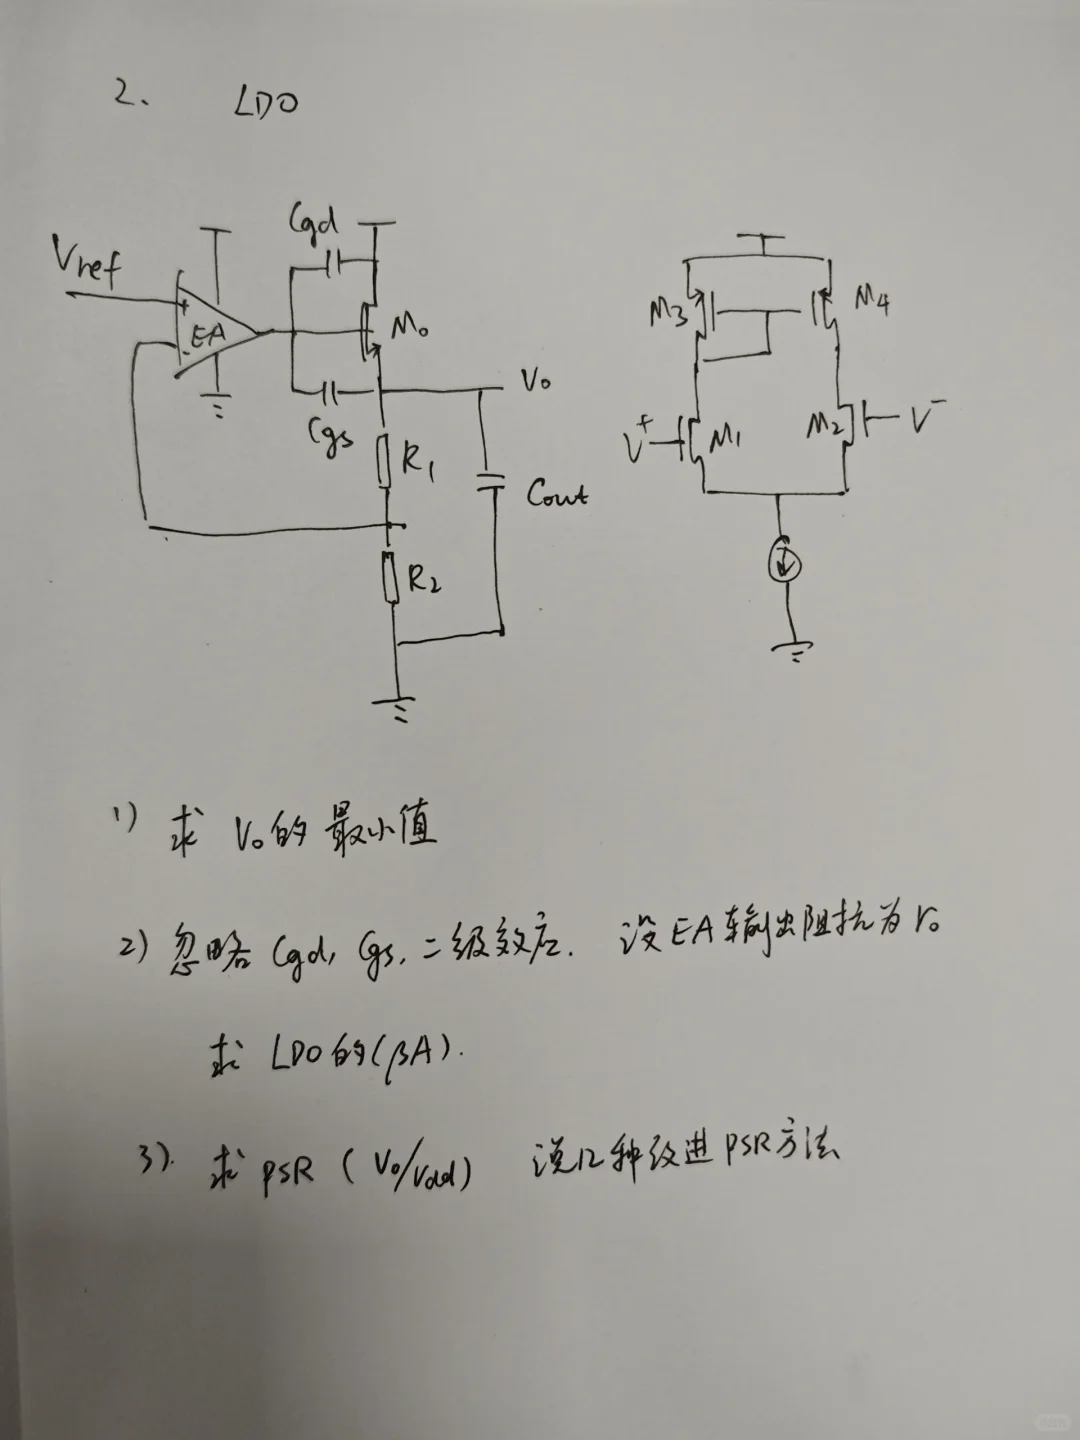 2. LDO
Cgd
Vref
+
EA
-
M0
Cgs
Vo
R1
Cout
R2
M3
M4
V+
M1
M2
V-
1) 求 Vo的最小值
2) 忽略 Cgd, Cgs, 二级效应. 设EA输出阻抗为ro
求 LDO的(βA).
3). 求 PSR ( Vo/Vdd) 说几种改进PSR方法